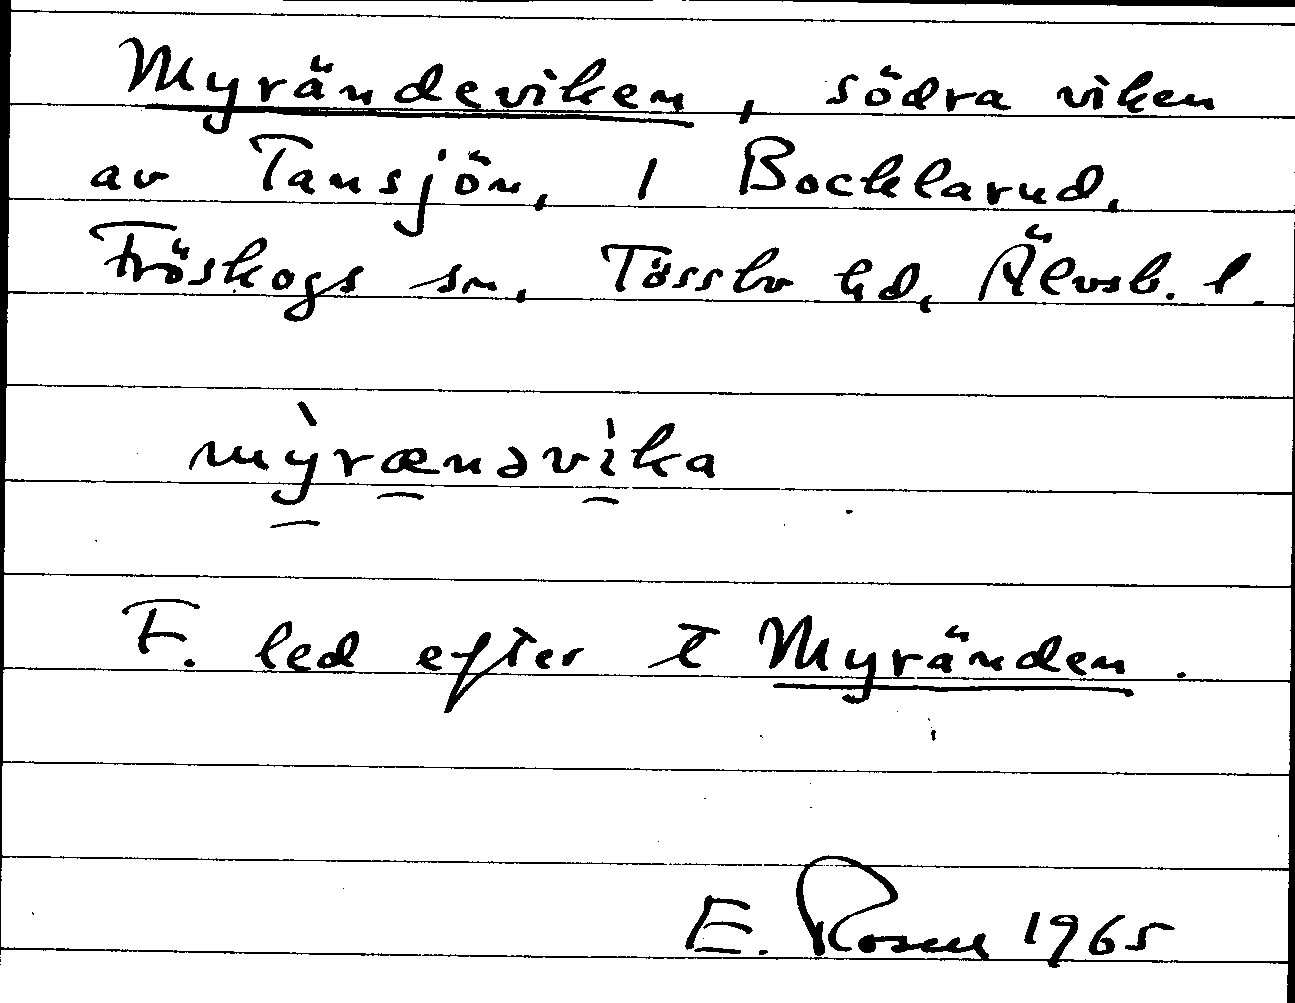 Myrändeviken, södra viken
av Tansjön, 1 Bocklarud,
Fröskogs sn, Tössbo hd, Älvsb. l.
mỳ̠ræ̠nəvì̠ka
F. led efter t Myränden.
E. Rosell 1965